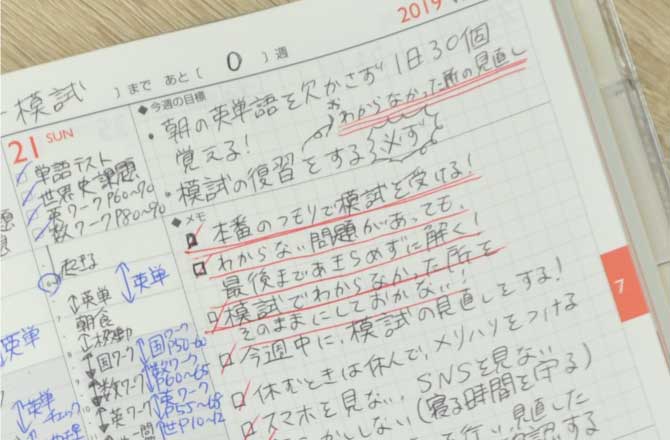 2019
模試 ）まで あと（ 0 ）週
◆今週の目標
・朝の英単語を欠かさず1日30個
覚える！
わからなかった所の見直し
・模試の復習をする 必ず
21 SUN
単語テスト
世界史課題
英ワークP60~90
数ワークP80~90
起きる
英単
英単
朝食
移動
国ワーク
国ワーク
数ワーク
数ワーク
P60~65
英ワーク
英ワーク
P55~68
世P10~12
英単
英単
チェック
◆メモ
本番のつもりで模試を受ける！
わからない問題があっても、
最後まであきらめずに解く！
模試でわからなかった所を
そのままにしておかない！
今週中に、模試の見直しをする！
休むときは休んで、メリハリをつける
スマホを見ない、SNSを見ない
（寝る時間を守る）
見直した
7